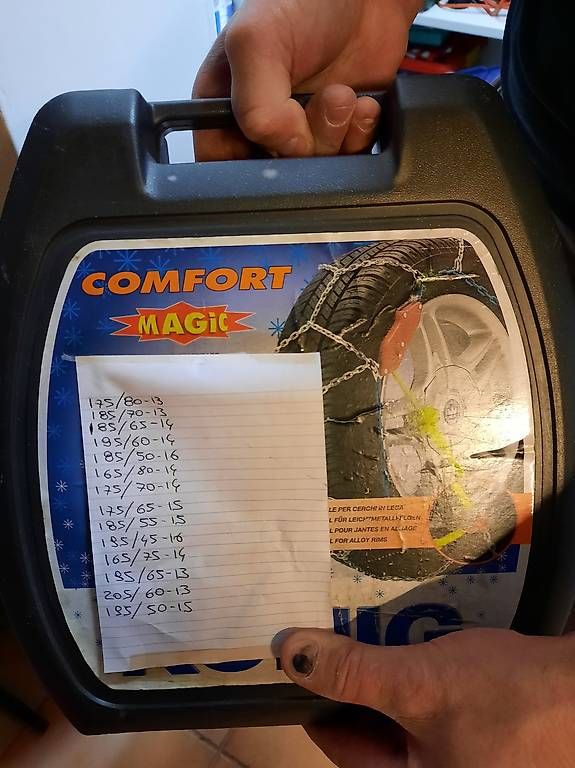 COMFORT
MAGiC
175/80-13
185/70-13
185/65-14
195/60-14
185/50-16
165/80-14
175/70-14
175/65-15
185/55-15
195/45-16
165/75-14
195/65-13
205/60-13
195/50-15
LE PER CERCHI IN LEGA
L FÜR LEICHTMETALLFELGEN
L POUR JANTES EN ALLIAGE
L FOR ALLOY RIMS